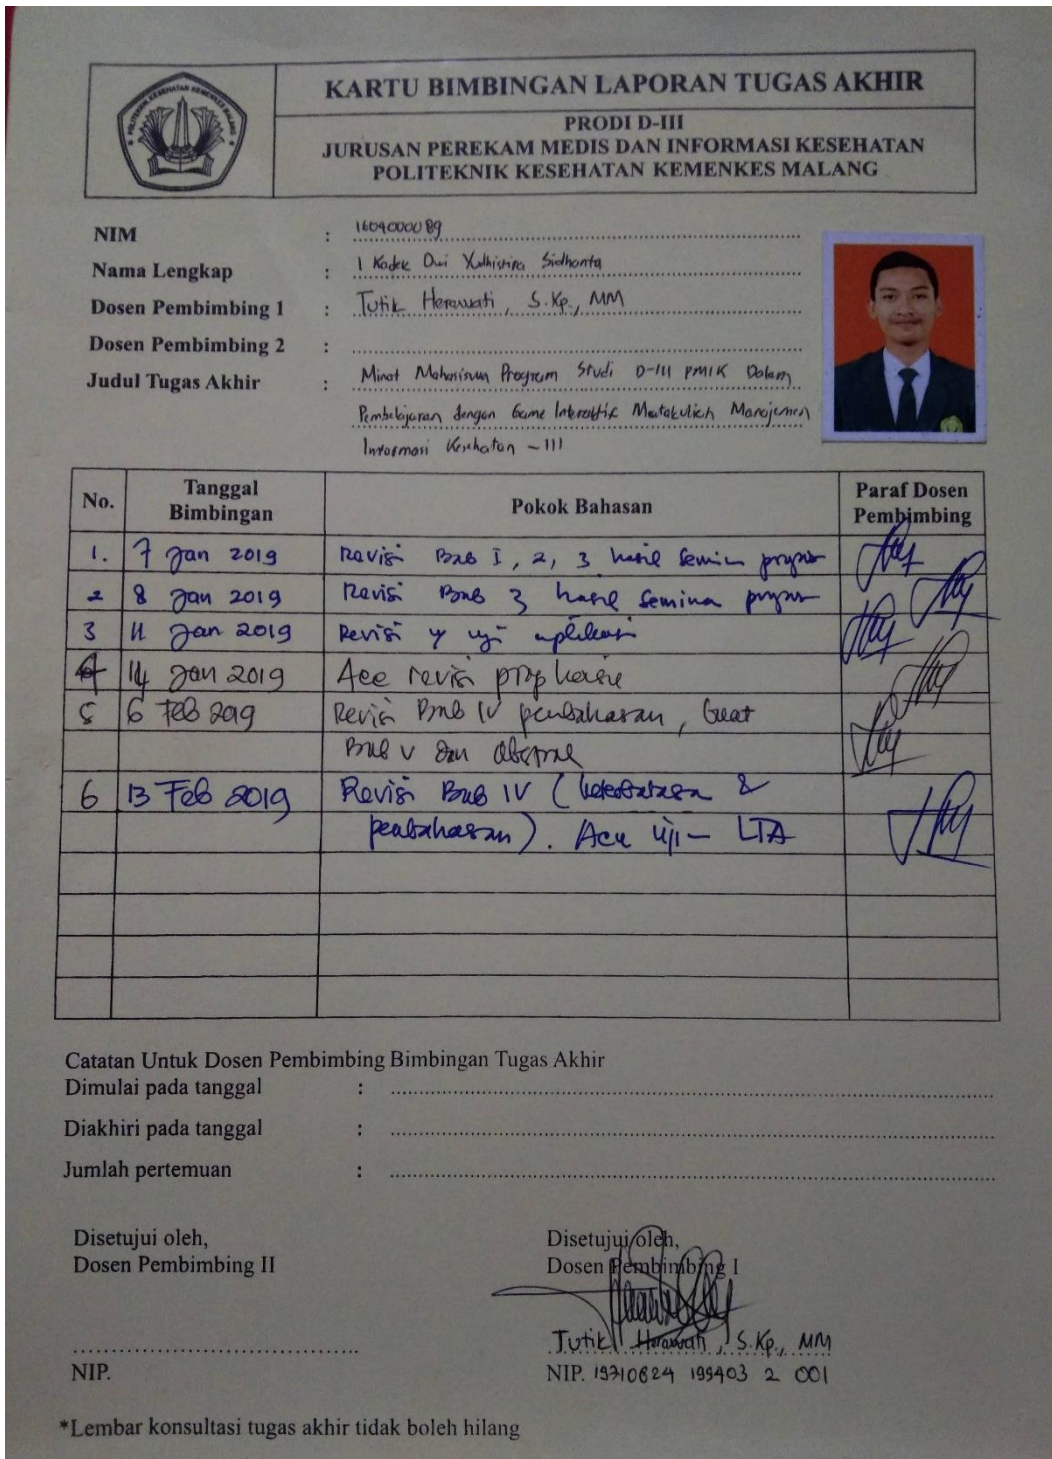 POLITEKNIK KESEHATAN KEMENKES MALANG
KARTU BIMBINGAN LAPORAN TUGAS AKHIR
PRODI D-III
JURUSAN PEREKAM MEDIS DAN INFORMASI KESEHATAN
POLITEKNIK KESEHATAN KEMENKES MALANG
NIM : 1604000089
Nama Lengkap : I Kadek Dwi Yudhistira Sidharta
Dosen Pembimbing 1 : Tutik Herawati, S.Kp., MM
Dosen Pembimbing 2 :
Judul Tugas Akhir : Minat Mahasiswa Program Studi D-III PMIK Dalam
Pembelajaran dengan Game Interaktif Matakuliah Manajemen
Informasi Kesehatan - III
No. Tanggal Bimbingan Pokok Bahasan Paraf Dosen Pembimbing
1. 7 Jan 2019 Revisi Bab I, 2, 3 hasil seminar
2 8 Jan 2019 Revisi Bab 3 hasil seminar
3 11 Jan 2019 Revisi uji aplikasi
4 14 Jan 2019 Acc revisi
5 6 Feb 2019 Revisi Bab IV pembahasan, buat
Bab V dan abstrak
6 13 Feb 2019 Revisi Bab IV (keterbatasan &
pembahasan). Acc uji - LTA
Catatan Untuk Dosen Pembimbing Bimbingan Tugas Akhir
Dimulai pada tanggal :
Diakhiri pada tanggal :
Jumlah pertemuan :
Disetujui oleh, Disetujui oleh,
Dosen Pembimbing II Dosen Pembimbing I
Tutik Herawati, S.Kp., MM
NIP. NIP. 19710624 199403 2 001
*Lembar konsultasi tugas akhir tidak boleh hilang